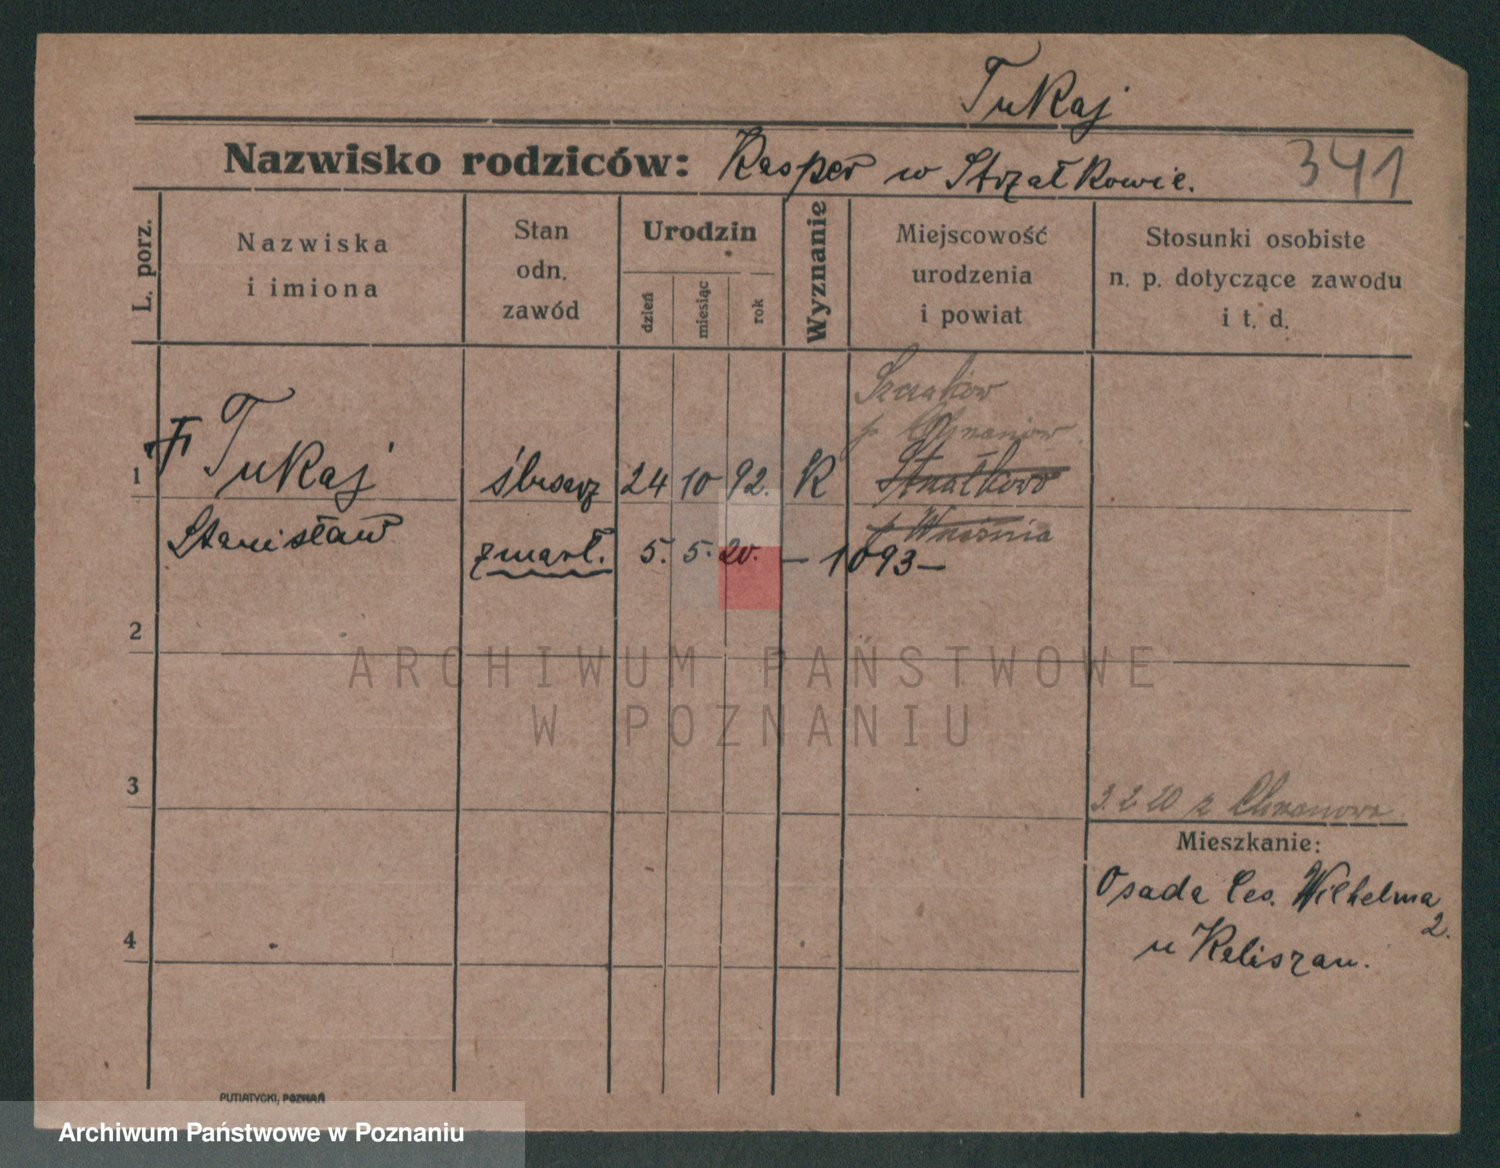 Tukaj
Nazwisko rodziców: Kasper w Strzałkowie.
341
L. porz.
Nazwiska
i imiona
Stan
odn.
zawód
Urodzin
dzień
miesiąc
rok
Wyznanie
Miejscowość
urodzenia
i powiat
Stosunki osobiste
n. p. dotyczące zawodu
i t. d.
p. Chrzanów
1 Tukaj ślusarz 24 10 92. K Strzałkowo
p. Września
Stanisław zmarł. 5. 5. 20. – 1093 –
2
ARCHIWUM PAŃSTWOWE
W POZNANIU
3
3 2 20 z Chrzanowa
Mieszkanie:
Osada Ces. Wilhelma
2.
4
u Keliszan.
PUTIATYCKI, POZNAŃ
Archiwum Państwowe w Poznaniu